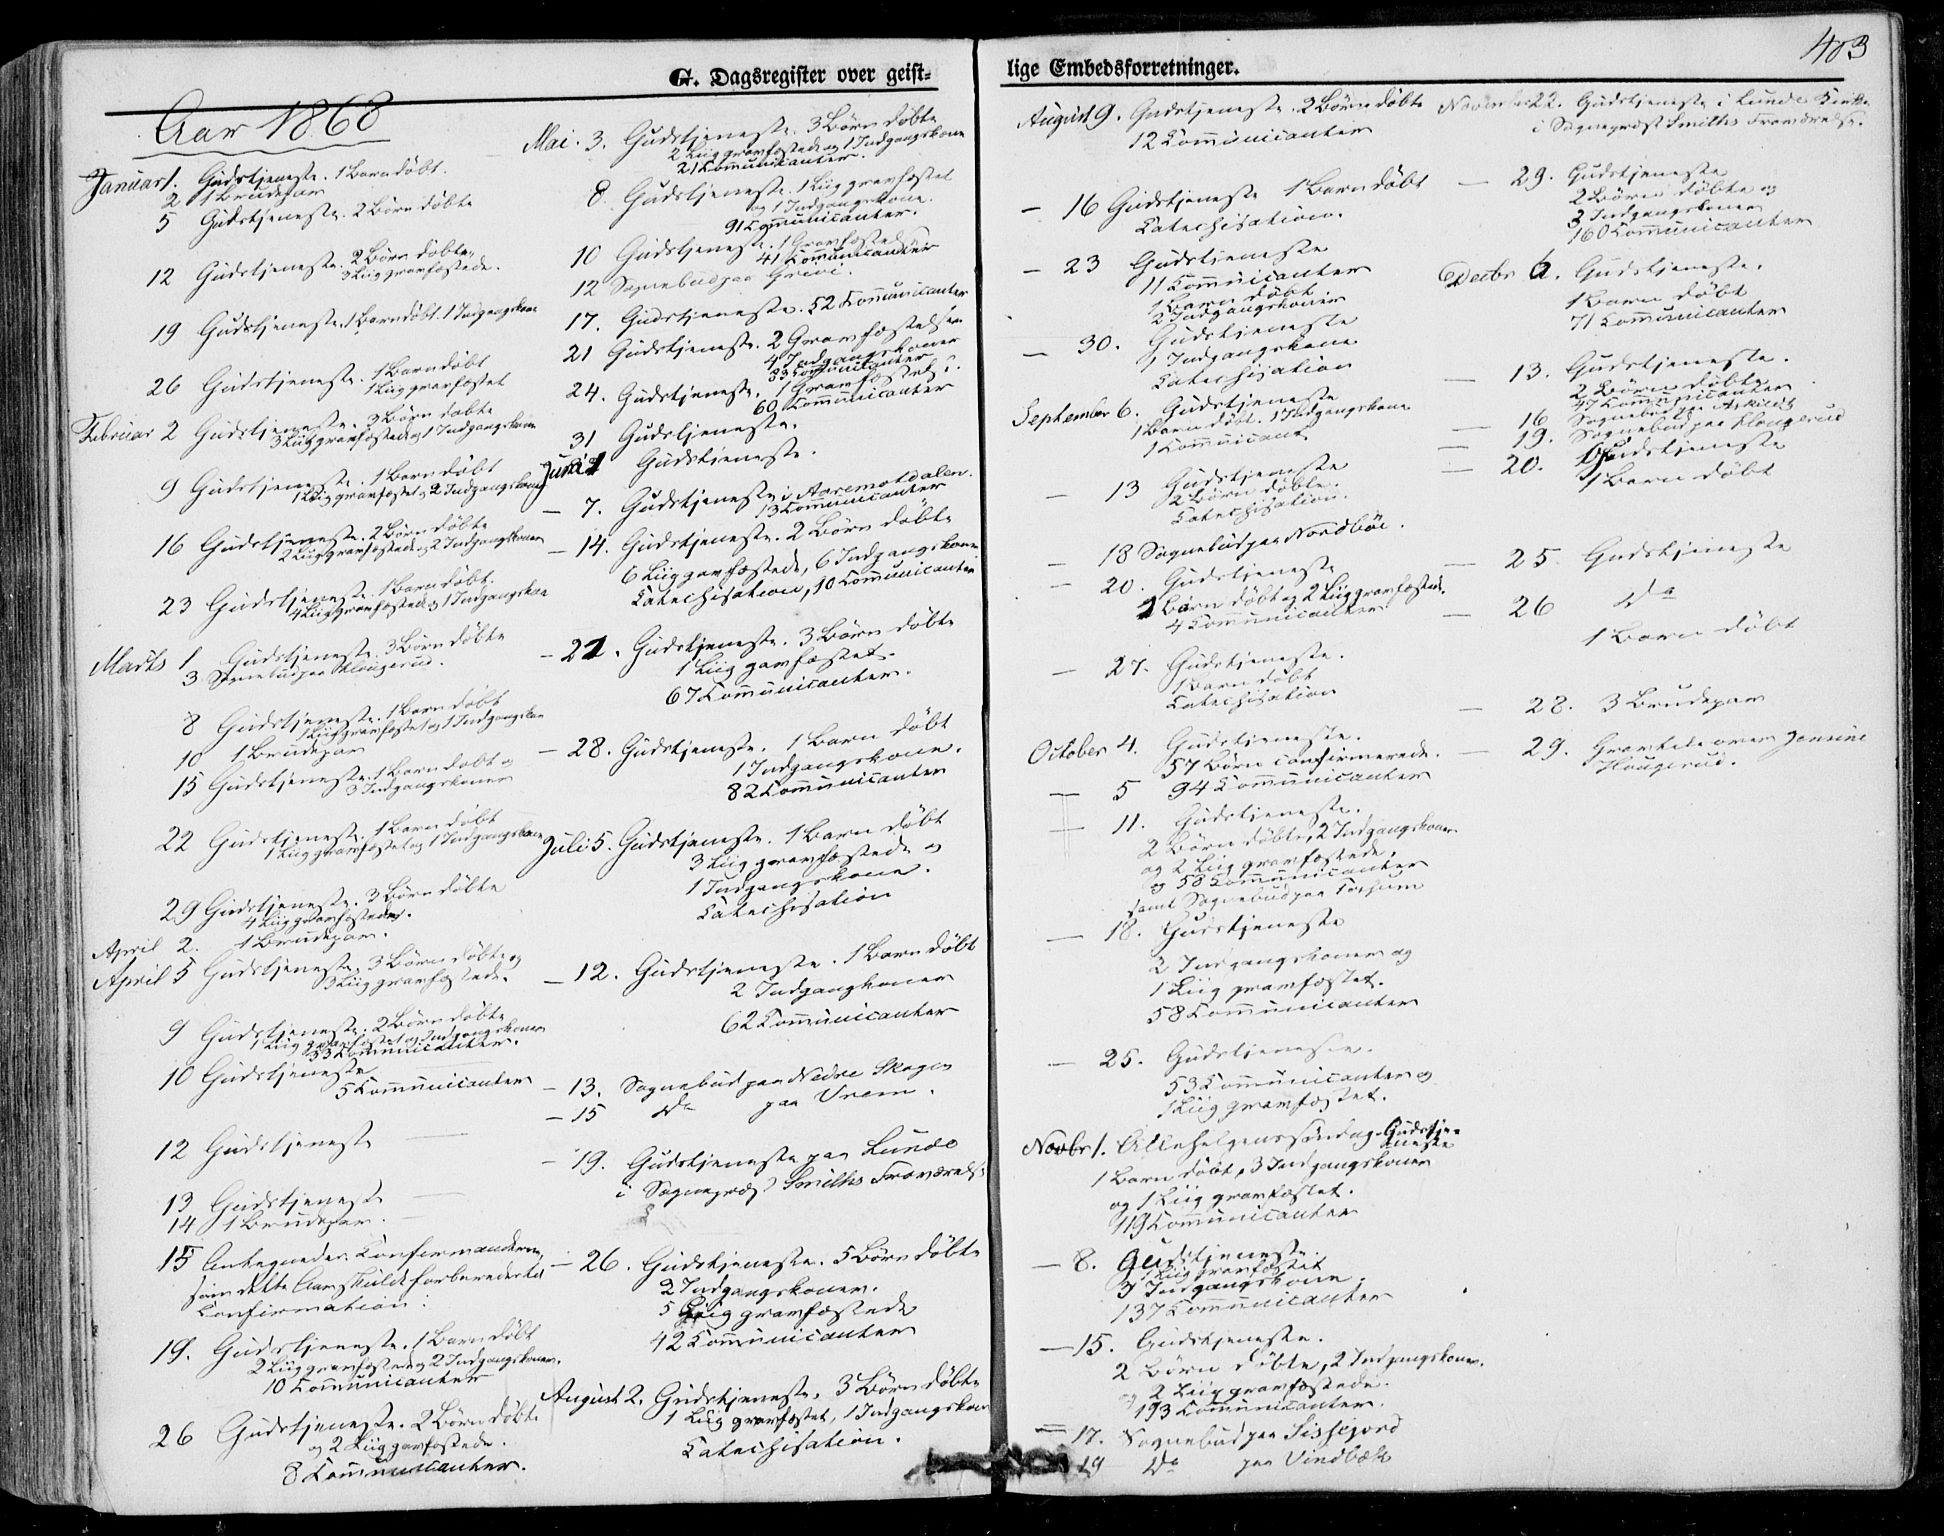 G. Dagsregister over geist-
Aar 1868
Januar 1. Gudstjeneste. 1 Barn døbt.
2 1 Brudepar
5 Gudstjeneste. 2 Børn døbte
12 Gudstjeneste. 2 Børn døbte,
3 Liig gravfæstede.
19 Gudstjeneste, 1 Barn døbt. 1 Indgangskone
26 Gudstjeneste. 1 Barn døbt
1 Liig gravfæstet
Februar 2 Gudstjeneste. 3 Børn døbte
3 Liig gravfæstede og 1 Indgangskone
9 Gudstjeneste. 1 Barn døbt
1 Liig gravfæstet og 2 Indgangskoner
16 Gudstjeneste. 2 Børn døbte
2 Liig gravfæstede og 2 Indgangskoner
23 Gudstjeneste. 1 Barn døbt.
4 Liig gravfæstede og 1 Indgangskone
Marts 1 Gudstjeneste. 3 Børn døbte
3 Sognebud paa Hougerud.
8 Gudstjeneste. 1 Barn døbt
1 Liig gravfæstet og 1 Indgangskone
10 1 Brudepar
15 Gudstjeneste. 1 Barn døbt og
3 Indgangskoner
22 Gudstjeneste. 1 Barn døbt
1 Liig gravfæstet og 1 Indgangskone
29 Gudstjeneste. 3 Børn døbte
4 Liig gravfæstede.
April 2. 1 Brudepar.
April 5 Gudstjeneste. 3 Børn døbte og
3 Liig gravfæstede.
9 Gudstjeneste. 2 Børn døbte
1 Liig gravfæstet og Indgangskoner
53 Communicanter.
10 Gudstjeneste
5 Communicanter
12 Gudstjeneste
13 Gudstjeneste
14 1 Brudepar.
15 Antegnedes Confirmanderne,
som dette Aar skulde forberedes til
Confirmation.
19. Gudstjeneste. 1 Barn døbt
2 Liig gravfæstede og 2 Indgangskoner.
10 Communicanter
26 Gudstjeneste. 2 Børn døbte
og 2 Liig gravfæstede.
8 Communicanter.
Mai. 3. Gudstjeneste. 3 Børn døbte
2 Liig gravfæstede og 1 Indgangskone
21 Communicanter.
8 Gudstjeneste. 1 Liig gravfæstet
og 1 Indgangskone.
91 Communicanter.
10 Gudstjeneste. 1 Gravfæstelse
41 Communicanter
12 Sognebud paa Grevi.
17. Gudstjeneste. 52 Communicanter
21 Gudstjeneste. 2 Gravfæstelser
4 Indgangskoner
83 Communicanter
24. Gudstjeneste, 1 Gravfæstelse.
60 Communicanter
31 Gudstjeneste.
Juni 1 Gudstjeneste.
– 7. Gudstjeneste i Aaremotdalen.
13 Communicanter
– 14. Gudstjeneste. 2 Børn døbte
6 Liig gravfæstede, 6 Indgangskoner
Catechisation, 10 Communicanter
– 21. Gudstjeneste. 3 Børn døbte
1 Liig gravfæstet.
67 Communicanter.
– 28. Gudstjeneste. 1 Barn døbt
1 Indgangskone.
82 Communicanter
Juli 5. Gudstjeneste. 1 Barn døbt
3 Liig gravfæstede og
1 Indgangskone.
Catechisation
– 12. Gudstjeneste. 1 Barn døbt
2 Indgangkoner
62 Communicanter
– 13. Sognebud paa Nedre Skogen
– 15 Do paa Vrem.
– 19. Gudstjeneste paa Lunde
i Sognepræst Smiths Fraværelse
– 26. Gudstjeneste. 5 Børn døbte
2 Indgangskoner.
5 Liig gravfæstede
42 Communicanter
August 2. Gudstjeneste, 3 Børn døbte
1 Liig gravfæstet, 1 Indgangskone
Catechisation.
lige Embedsforretninger.
403
August 9. Gudstjeneste. 2 Børn døbte
12 Communicanter
– 16 Gudstjeneste 1 Barn døbt
Catechisation.
– 23 Gudstjeneste
11 Communicanter
1 Barn døbt
2 Indgangskoner
– 30. Gudstjeneste
1 Indgangskone
Catechisation
September 6. Gudstjeneste
1 Barn døbt. 1 Indgangskone
1 Communicant
– 13 Gudstjeneste
2 Børn døbte.
Catechisation.
– 18 Sognebud paa Nordbøe.
– 20. Gudstjeneste
2 Børn døbt og 2 Liig gravfæstede.
4 Communicanter
– 27. Gudstjeneste.
1 Barn døbt
Catechisation
October 4. Gudstjeneste.
57 Børn confirmerede.
– 5 94 Communicanter
– 11. Gudstjeneste.
2 Børn døbte, 2 Indgangskoner
og 2 Liig gravfæstede,
og 58 Communicanter
samt Sognebud paa
– 18. Gudstjeneste
2 Indgangskoner og
1 Liig gravfæstet.
58 Communicanter
– 25. Gudstjeneste.
53 Communicanter og
1 Liig gravfæstet.
Novbr 1. Allehelgenssøndag. Gudstje-
neste
1 Barn døbt, 3 Indgangskoner
og 1 Liig gravfæstet.
119 Communicanter
– 8. Gudstjeneste.
1 Liig gravfæstet
3 Indgangskone,
137 Communicanter
– 15. Gudstjeneste.
2 Børn døbte, 2 Indgangskoner.
og 2 Liig gravfæstede.
193 Communicanter.
– 17. Sognebud paa Sissejord
19 Do paa Vindbæk
November 22. Gudstjeneste i Lunde Kirke
i Sognepræst Smiths Fraværelse.
– 29. Gudstjeneste
2 Børn døbte og
3 Indgangskoner
160 Communicanter
Decbr 6. Gudstjeneste.
1 Barn døbt
71 Communicanter
– 13. Gudstjeneste.
2 Børn døbte
47 Communicanter
– 16 Sognebud paa
– 19. Sognebud paa Hougerud
– 20. Gudstjeneste
1 Barn døbt
– 25. Gudstjeneste
– 26 Do
1 Barn døbt
– 28. 3 Brudepar
– 29. Gravtale over Jonsine
Hougerud.